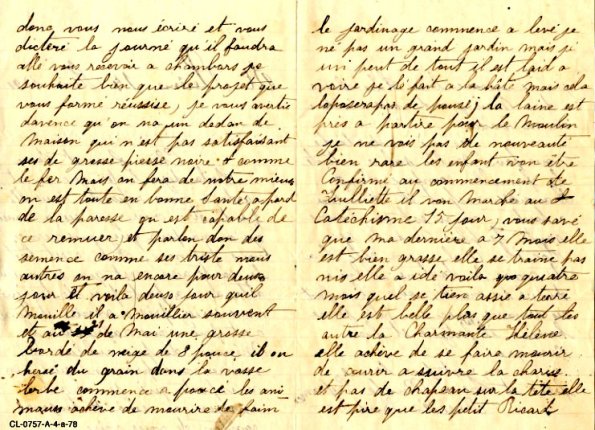 donq vous nous écriré et vous
dicteré la journé qu'il faudra
allé vous reservoir a chambors je
souhaite bien que le projet que
vous formé réussise, je vous avertie
davence qu'on na un dedan de
maison qui n'est pas satisfaisant
ses de grosse piesse noire comme
le fer Mais on fera de notre mieux
on est toute en bonne Santer apard
de la paresse qu est capable de
ce remuer, et parlon don des
semence comme ses triste nous
autres on na encore pour deus
jour et voila deus jour quil
mouille il a mouillier souvent
et au de Mai une grosse
bordé de neige de 8 pouce, il on
hersé du grain dans la vasse
lerbe commence a poucé les ani
maux achève de mourire de faim
le jardinage commence a levé je
né pas un grand jardin mais ji
un peut de tout il est laid a
voire je lé fait a la hâte mais cela
loposerapas de pousé, la laine est
près a partire pour le Moulin
je ne vois pas de nouveauté
bien rare les enfant von être
Confirmé au commencement de
Juilliette il von Marche au
Catéchisme 15 jour, vous savé
que ma dernière a 7 mois elle
est bien grasse elle se traine pas
nis elle a idé voila quatre
mois quel se tien assie a terre
elle est belle plus que tout les
autre la Charmante Hélène
elle achève de se faire mourir
de courir a suivre la charus
et pas de chapeau sur la tête elle
est pire que les petit Ricard
CL-0757-A-4-a-78